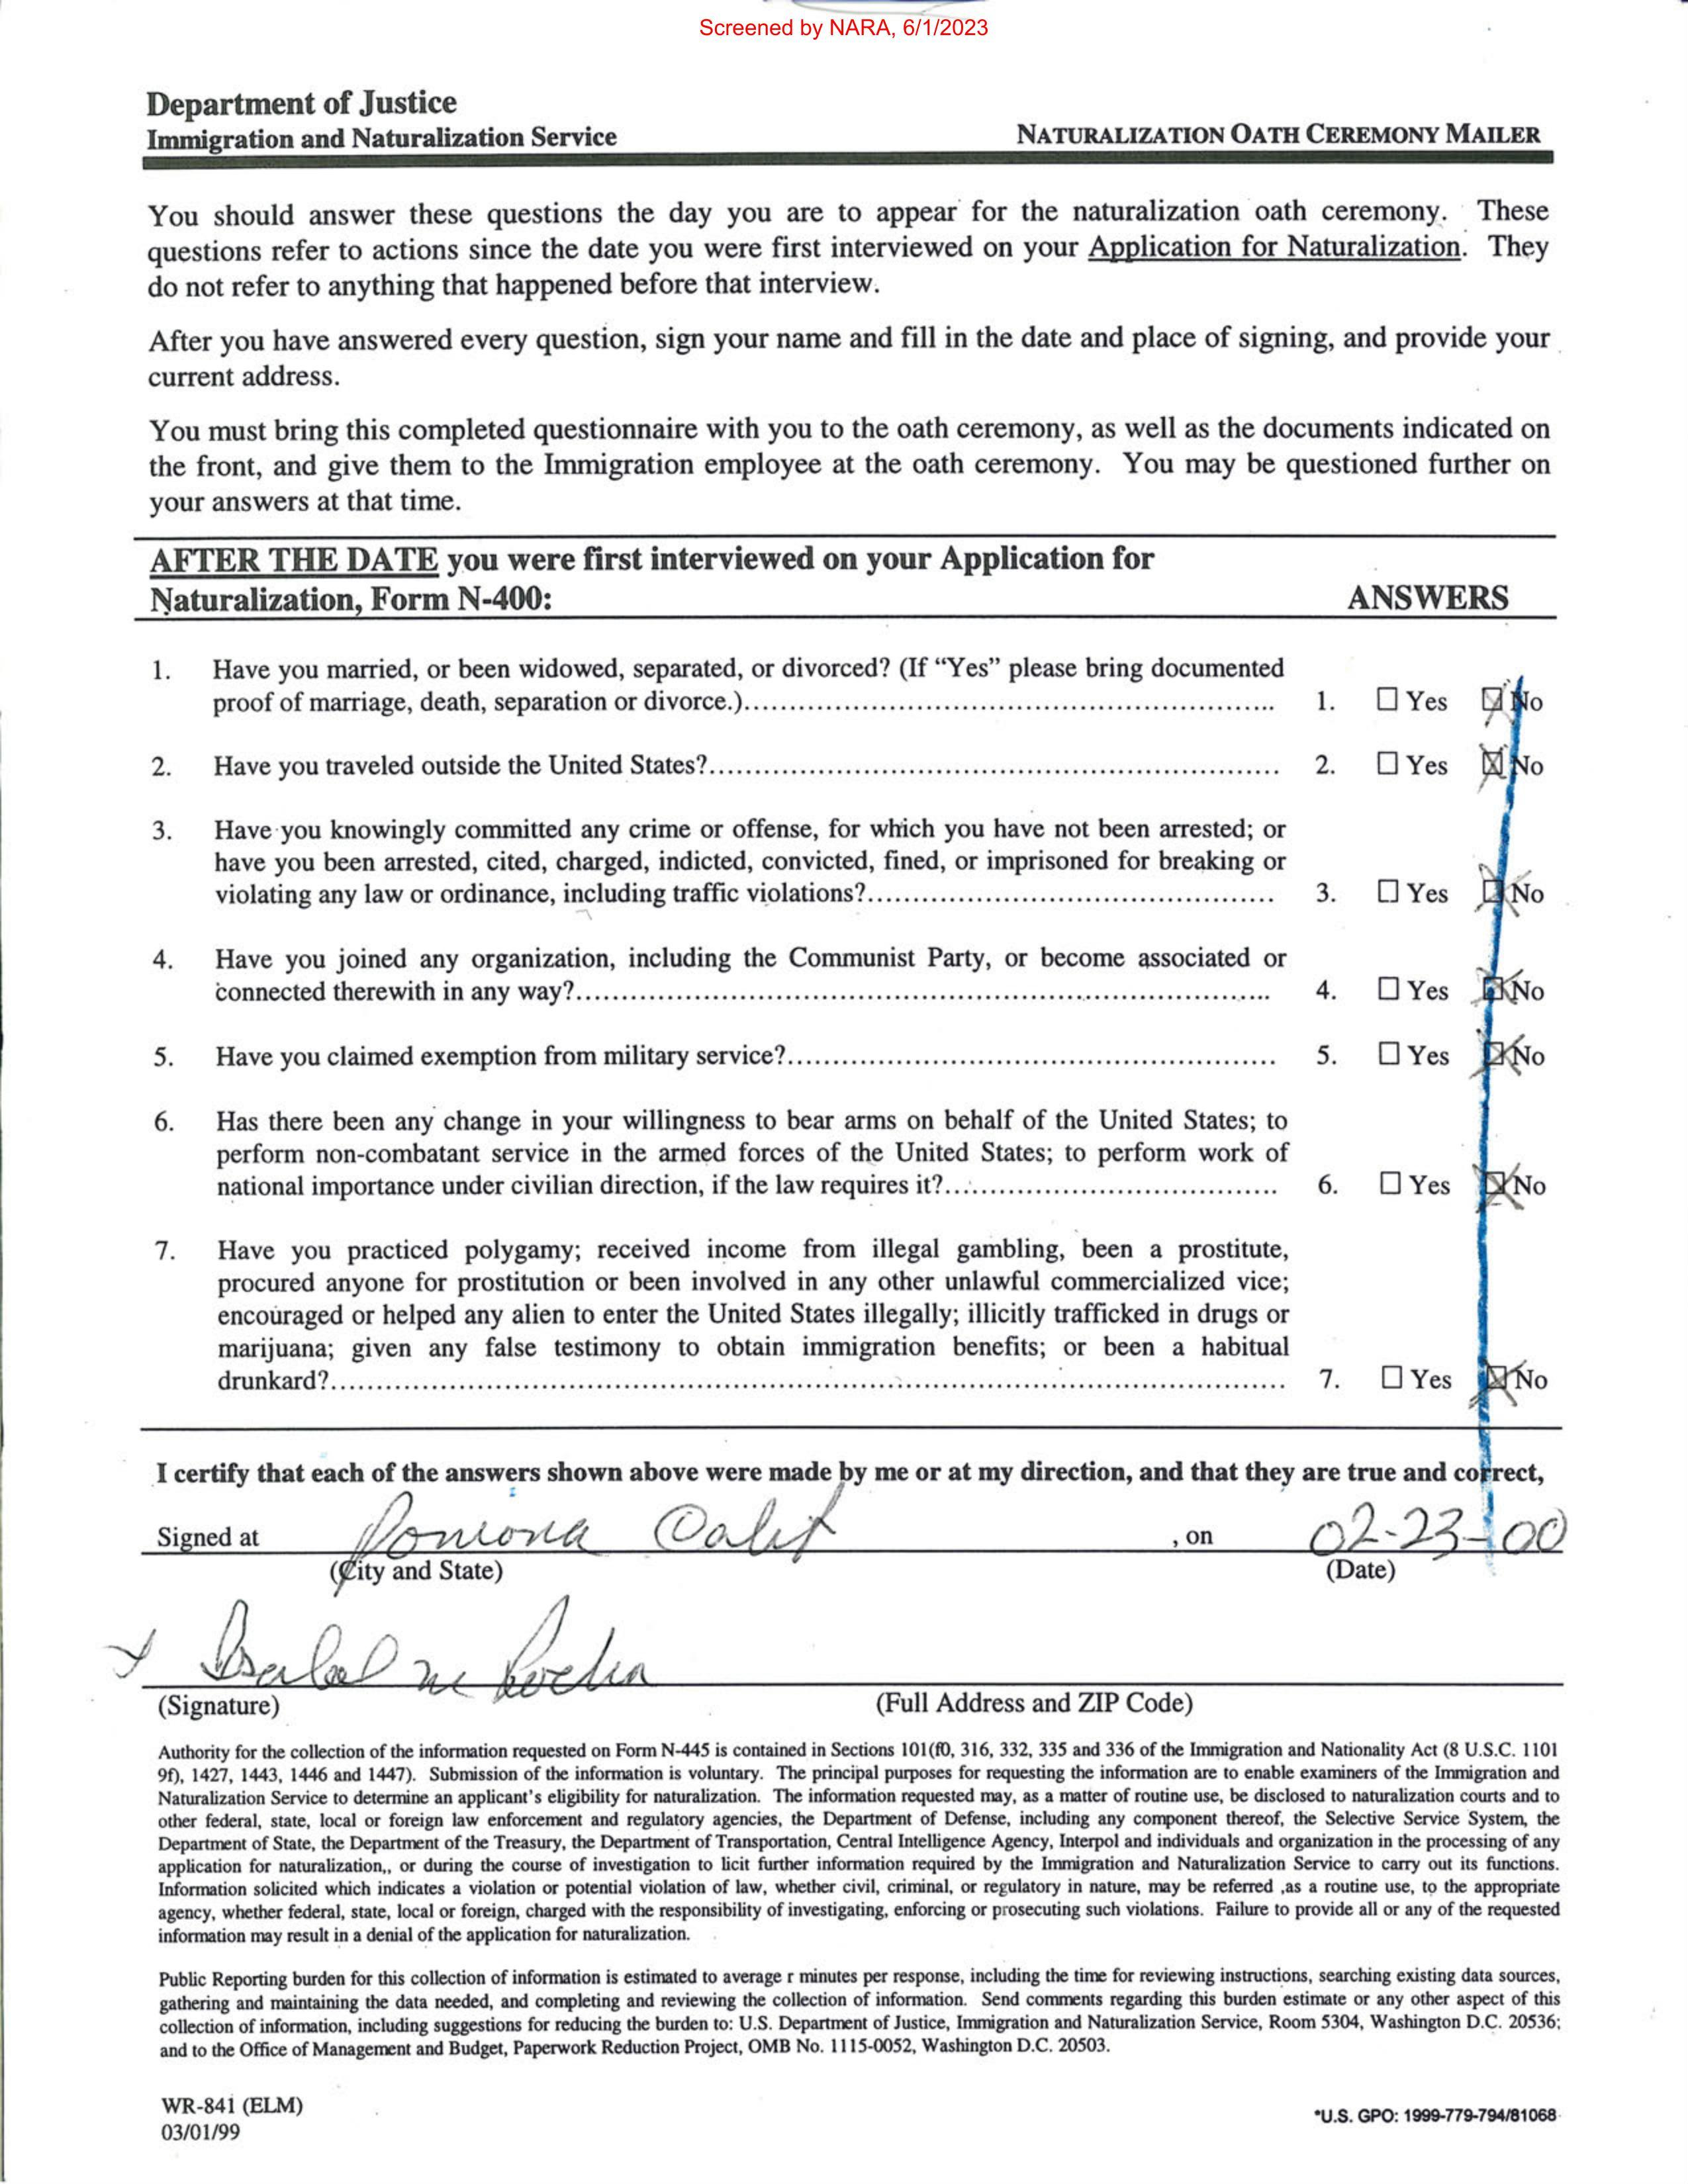 Screened by NARA, 6/1/2023
Department of Justice
Immigration and Naturalization Service
NATURALIZATION OATH CEREMONY MAILER
You should answer these questions the day you are to appear for the naturalization oath ceremony. These
questions refer to actions since the date you were first interviewed on your Application for Naturalization. They
do not refer to anything that happened before that interview.
After you have answered every question, sign your name and fill in the date and place of signing, and provide your
current address.
You must bring this completed questionnaire with you to the oath ceremony, as well as the documents indicated on
the front, and give them to the Immigration employee at the oath ceremony. You may be questioned further on
your answers at that time.
AFTER THE DATE you were first interviewed on your Application for
Naturalization, Form N-400: ANSWERS
1. Have you married, or been widowed, separated, or divorced? (If “Yes” please bring documented
proof of marriage, death, separation or divorce.)... 1. ☐ Yes ☒ No
2. Have you traveled outside the United States?... 2. ☐ Yes ☒ No
3. Have you knowingly committed any crime or offense, for which you have not been arrested; or
have you been arrested, cited, charged, indicted, convicted, fined, or imprisoned for breaking or
violating any law or ordinance, including traffic violations?... 3. ☐ Yes ☒ No
4. Have you joined any organization, including the Communist Party, or become associated or
connected therewith in any way?... 4. ☐ Yes ☒ No
5. Have you claimed exemption from military service?... 5. ☐ Yes ☒ No
6. Has there been any change in your willingness to bear arms on behalf of the United States; to
perform non-combatant service in the armed forces of the United States; to perform work of
national importance under civilian direction, if the law requires it?... 6. ☐ Yes ☒ No
7. Have you practiced polygamy; received income from illegal gambling, been a prostitute,
procured anyone for prostitution or been involved in any other unlawful commercialized vice;
encouraged or helped any alien to enter the United States illegally; illicitly trafficked in drugs or
marijuana; given any false testimony to obtain immigration benefits; or been a habitual
drunkard?... 7. ☐ Yes ☒ No
I certify that each of the answers shown above were made by me or at my direction, and that they are true and correct,
Signed at Pomona Calif , on 02-23-00
(City and State) (Date)
Isabel M Rocha
(Signature) (Full Address and ZIP Code)
Authority for the collection of the information requested on Form N-445 is contained in Sections 101(f0, 316, 332, 335 and 336 of the Immigration and Nationality Act (8 U.S.C. 1101
9f), 1427, 1443, 1446 and 1447). Submission of the information is voluntary. The principal purposes for requesting the information are to enable examiners of the Immigration and
Naturalization Service to determine an applicant’s eligibility for naturalization. The information requested may, as a matter of routine use, be disclosed to naturalization courts and to
other federal, state, local or foreign law enforcement and regulatory agencies, the Department of Defense, including any component thereof, the Selective Service System, the
Department of State, the Department of the Treasury, the Department of Transportation, Central Intelligence Agency, Interpol and individuals and organization in the processing of any
application for naturalization,, or during the course of investigation to licit further information required by the Immigration and Naturalization Service to carry out its functions.
Information solicited which indicates a violation or potential violation of law, whether civil, criminal, or regulatory in nature, may be referred ,as a routine use, to the appropriate
agency, whether federal, state, local or foreign, charged with the responsibility of investigating, enforcing or prosecuting such violations. Failure to provide all or any of the requested
information may result in a denial of the application for naturalization.
Public Reporting burden for this collection of information is estimated to average r minutes per response, including the time for reviewing instructions, searching existing data sources,
gathering and maintaining the data needed, and completing and reviewing the collection of information. Send comments regarding this burden estimate or any other aspect of this
collection of information, including suggestions for reducing the burden to: U.S. Department of Justice, Immigration and Naturalization Service, Room 5304, Washington D.C. 20536;
and to the Office of Management and Budget, Paperwork Reduction Project, OMB No. 1115-0052, Washington D.C. 20503.
WR-841 (ELM)
03/01/99
*U.S. GPO: 1999-779-794/81068